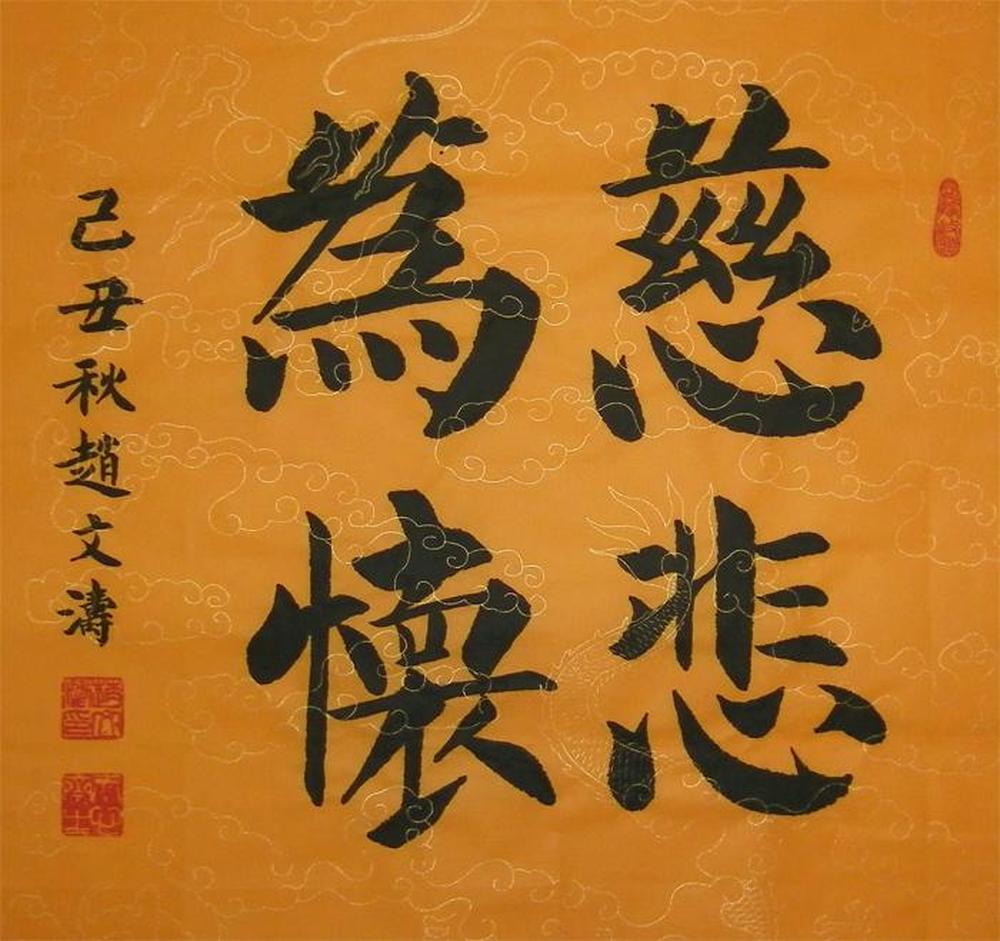 慈悲
為懷
己丑秋趙文濤